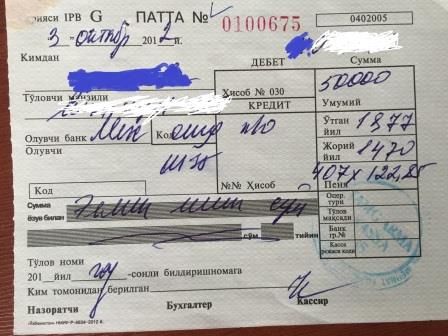 рияси IPB G ПАТТА № 0100675 0402005
3 " октябр 2012 й. ДЕБЕТ Сумма
Кимдан 50000
Ҳисоб № 030 Умумий
Тўловчи манзили КРЕДИТ Ўтган йил 1977
Олувчи банк Код Жорий йил 1470
Олувчи 407 x 122,85
Код №№ Ҳисоб Пеня
Сумма ёзув билан Эллик минг сўм Опер. тури
сўм тийин Тўлов мақсади
Банк гр.№
Тўлов номи Касса режаси коди
201 йил -сонли билдиришномага
Ким томонидан берилган
Назоратчи Бухгалтер Кассир